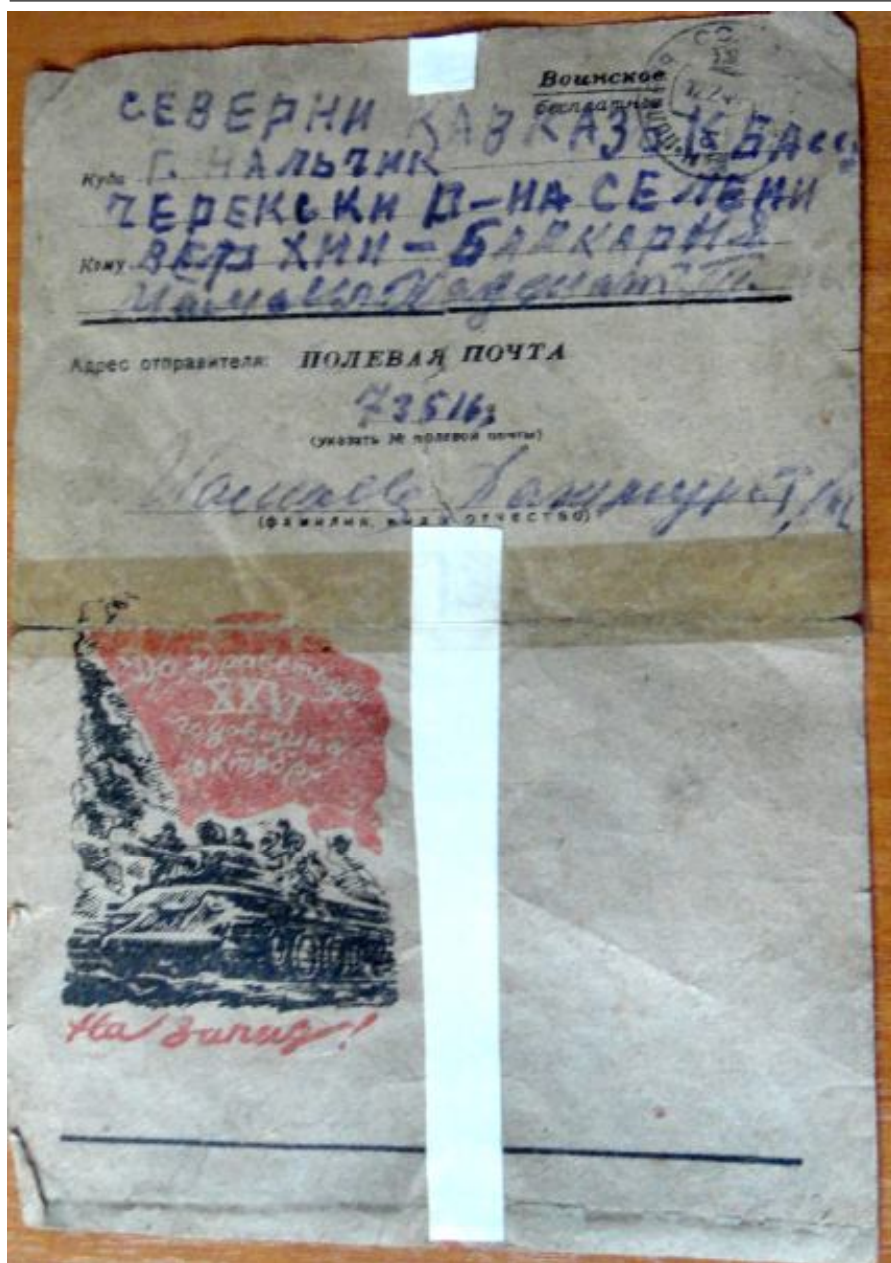 Воинское
бесплатное
СЕВЕРНИ КАВКАЗЬ К БАсс
Куда Г. НАЛЬЧИК
ЧЕРЕКСКИ Р-НА СЕЛЕНИ
Кому ВЕРХНИИ-БАЛКАРИЯ
Адрес отправителя: ПОЛЕВАЯ ПОЧТА
73516
(указать № полевой почты)
(фамилия, имя и отчество)
Да здравствует
XXVI
годовщина
октября
На запад!